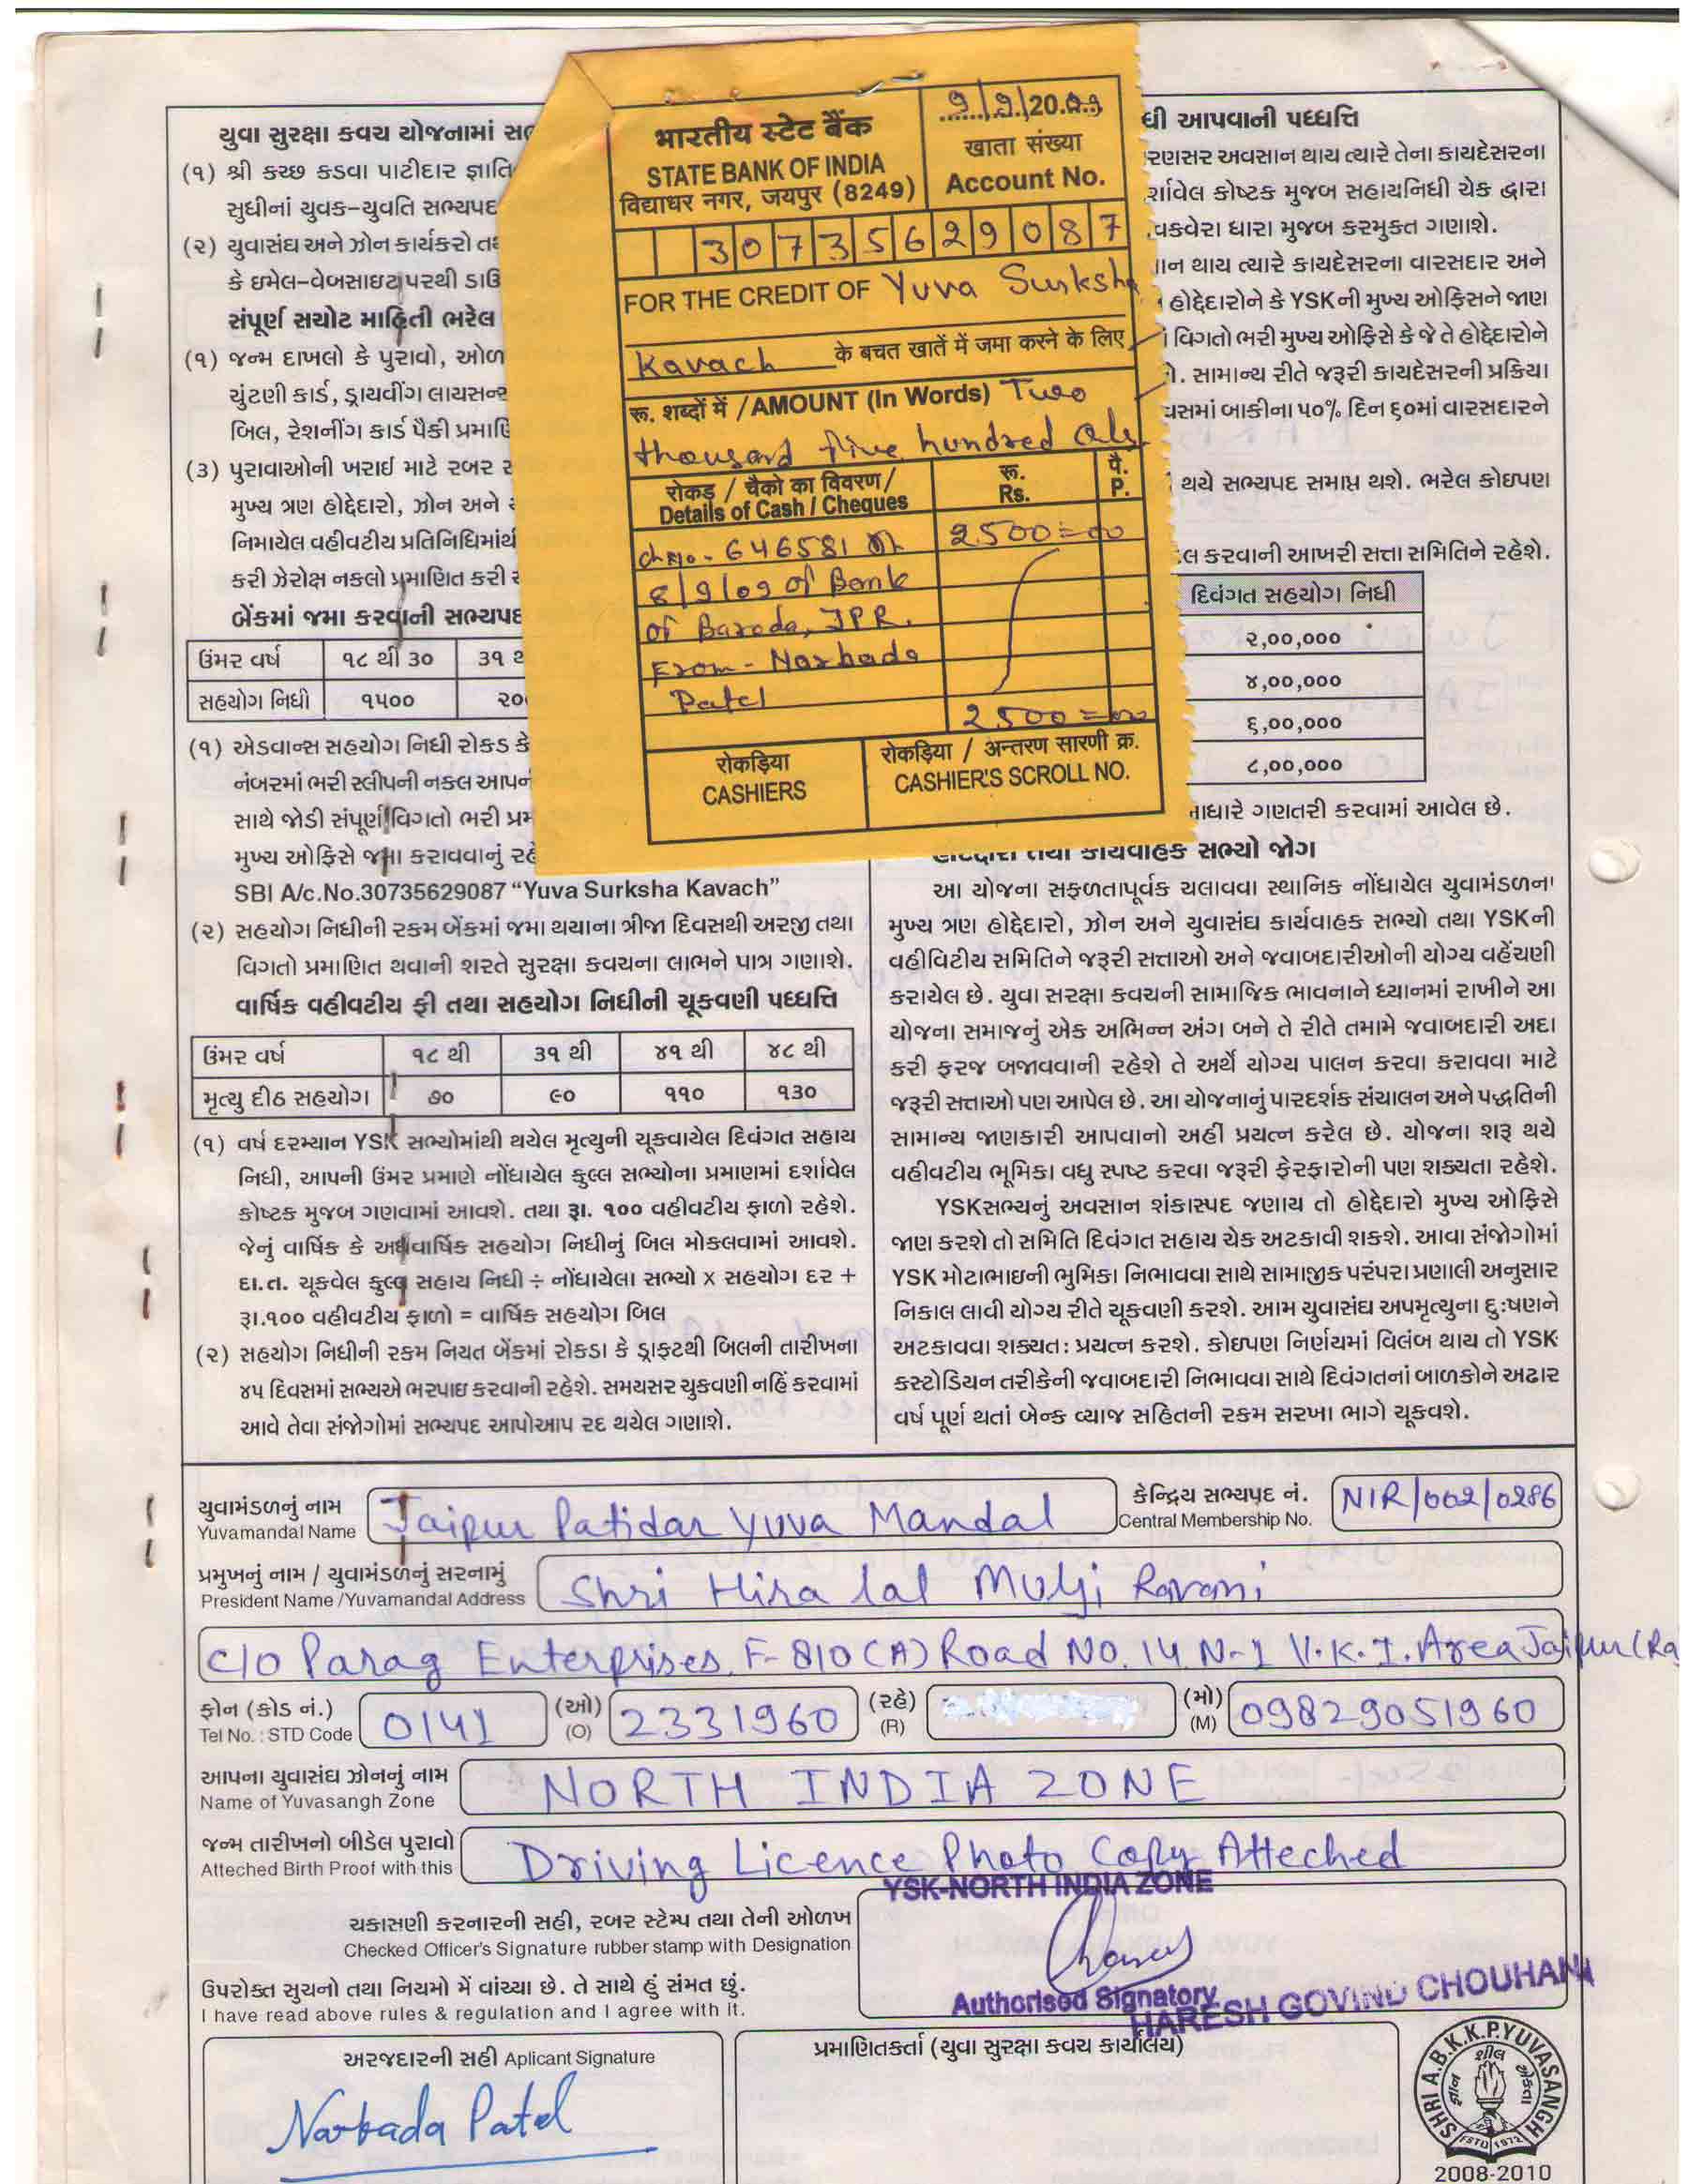 યુવા સુરક્ષા કવચ યોજનામાં
(૧) શ્રી કચ્છ કડવા પાટીદાર જ્ઞાતિ
સુધીનાં યુવક-યુવતિ સભ્યપદ
(૨) યુવાસંઘ અને ઝોન કાર્યકરો
કે ઇમેલ-વેબસાઇટ પરથી
સંપૂર્ણ સચોટ માહિતી ભરેલ
(૧) જન્મ દાખલો કે પુરાવો,
ચુંટણી કાર્ડ, ડ્રાયવીંગ લાયસન્સ
બિલ, રેશનીંગ કાર્ડ પૈકી
(૩) પુરાવાઓની ખરાઈ માટે રબર
મુખ્ય ત્રણ હોદ્દેદારો, ઝોન અને
નિમાયેલ વહીવટીય પ્રતિનિધિમાંથી
કરી ઝેરોક્ષ નકલો પ્રમાણિત કરી
બેંકમાં જમા કરવાની સભ્યપદ
ઉંમર વર્ષ ૧૮ થી ૩૦ ૩૧
સહયોગ નિધી ૧૫૦૦
(૧) એડવાન્સ સહયોગ નિધી રોકડ કે
નંબરમાં ભરી સ્લીપની નકલ
સાથે જોડી સંપૂર્ણ વિગતો ભરી
મુખ્ય ઓફિસે જમા કરાવવાનું
SBI A/c.No.30735629087 “Yuva Surksha Kavach”
(૨) સહયોગ નિધીની રકમ બેંકમાં જમા થયાના ત્રીજા દિવસથી અરજી તથા
વિગતો પ્રમાણિત થવાની શરતે સુરક્ષા કવચના લાભને પાત્ર ગણાશે.
વાર્ષિક વહીવટીય ફી તથા સહયોગ નિધીની ચૂકવણી પધ્ધત્તિ
ઉંમર વર્ષ ૧૮ થી ૩૧ થી ૪૧ થી ૪૮ થી
મૃત્યુ દીઠ સહયોગ ૭૦ ૯૦ ૧૧૦ ૧૩૦
(૧) વર્ષ દરમ્યાન YSK સભ્યોમાંથી થયેલ મૃત્યુની ચૂકવાયેલ દિવંગત સહાય
નિધી, આપની ઉંમર પ્રમાણે નોંધાયેલ કુલ્લ સભ્યોના પ્રમાણમાં દર્શાવેલ
કોષ્ટક મુજબ ગણવામાં આવશે. તથા રૂા. ૧૦૦ વહીવટીય ફાળો રહેશે.
જેનું વાર્ષિક કે અર્ધવાર્ષિક સહયોગ નિધીનું બિલ મોકલવામાં આવશે.
દા.ત. ચૂકવેલ કુલ્લ સહાય નિધી ÷ નોંધાયેલા સભ્યો X સહયોગ દર +
રૂા.૧૦૦ વહીવટીય ફાળો = વાર્ષિક સહયોગ બિલ
(૨) સહયોગ નિધીની રકમ નિયત બેંકમાં રોકડા કે ડ્રાફટથી બિલની તારીખના
૪૫ દિવસમાં સભ્યએ ભરપાઇ કરવાની રહેશે. સમયસર ચુકવણી નહિં કરવામાં
આવે તેવા સંજોગોમાં સભ્યપદ આપોઆપ રદ થયેલ ગણાશે.
भारतीय स्टेट बैंक
STATE BANK OF INDIA
विद्याधर नगर, जयपुर (8249)
9/9/20.09
खाता संख्या
Account No.
30735629087
FOR THE CREDIT OF Yuva Surksha
Kavach के बचत खातें में जमा करने के लिए
रू. शब्दों में /AMOUNT (In Words) Two
thousand five hundred only
रोकड़ / चैको का विवरण/ रू. पै.
Details of Cash / Cheques Rs. P.
ch no - 646581 dt 2500=00
8/9/09 of Bank
of Baroda, JPR.
From - Narbada
Patel
2500=00
रोकड़िया रोकड़िया / अन्तरण सारणी क्र.
CASHIERS CASHIER'S SCROLL NO.
આપવાની પધ્ધત્તિ
અવસાન થાય ત્યારે તેના કાયદેસરના
કોષ્ટક મુજબ સહાયનિધી ચેક દ્વારા
ધારા મુજબ કરમુક્ત ગણાશે.
થાય ત્યારે કાયદેસરના વારસદાર અને
હોદ્દેદારોને કે YSKની મુખ્ય ઓફિસને જાણ
વિગતો ભરી મુખ્ય ઓફિસે કે જે તે હોદ્દેદારોને
સામાન્ય રીતે જરૂરી કાયદેસરની પ્રક્રિયા
બાકીના ૫૦% દિન ૬૦માં વારસદારને
થયે સભ્યપદ સમાપ્ત થશે. ભરેલ કોઇપણ
કરવાની આખરી સત્તા સમિતિને રહેશે.
દિવંગત સહયોગ નિધી
૨,૦૦,૦૦૦
૪,૦૦,૦૦૦
૬,૦૦,૦૦૦
૮,૦૦,૦૦૦
ગણતરી કરવામાં આવેલ છે.
હોદ્દેદારો તથા કાર્યવાહક સભ્યો જોગ
આ યોજના સફળતાપૂર્વક ચલાવવા સ્થાનિક નોંધાયેલ યુવામંડળના
મુખ્ય ત્રણ હોદ્દેદારો, ઝોન અને યુવાસંઘ કાર્યવાહક સભ્યો તથા YSKની
વહીવિટીય સમિતિને જરૂરી સત્તાઓ અને જવાબદારીઓની યોગ્ય વહેંચણી
કરાયેલ છે. યુવા સરક્ષા કવચની સામાજિક ભાવનાને ધ્યાનમાં રાખીને આ
યોજના સમાજનું એક અભિન્ન અંગ બને તે રીતે તમામે જવાબદારી અદા
કરી ફરજ બજાવવાની રહેશે તે અર્થે યોગ્ય પાલન કરવા કરાવવા માટે
જરૂરી સત્તાઓ પણ આપેલ છે. આ યોજનાનું પારદર્શક સંચાલન અને પદ્ધતિની
સામાન્ય જાણકારી આપવાનો અહીં પ્રયત્ન કરેલ છે. યોજના શરૂ થયે
વહીવટીય ભૂમિકા વધુ સ્પષ્ટ કરવા જરૂરી ફેરફારોની પણ શક્યતા રહેશે.
YSKસભ્યનું અવસાન શંકાસ્પદ જણાય તો હોદ્દેદારો મુખ્ય ઓફિસે
જાણ કરશે તો સમિતિ દિવંગત સહાય ચેક અટકાવી શકશે. આવા સંજોગોમાં
YSK મોટાભાઇની ભુમિકા નિભાવવા સાથે સામાજીક પરંપરા પ્રણાલી અનુસાર
નિકાલ લાવી યોગ્ય રીતે ચૂકવણી કરશે. આમ યુવાસંઘ અપમૃત્યુના દુઃષણને
અટકાવવા શક્યતઃ પ્રયત્ન કરશે. કોઇપણ નિર્ણયમાં વિલંબ થાય તો YSK
કસ્ટોડિયન તરીકેની જવાબદારી નિભાવવા સાથે દિવંગતનાં બાળકોને અઢાર
વર્ષ પૂર્ણ થતાં બેન્ક વ્યાજ સહિતની રકમ સરખા ભાગે ચૂકવશે.
યુવામંડળનું નામ
Yuvamandal Name Jaipur Patidar Yuva Mandal
કેન્દ્રિય સભ્યપદ નં.
Central Membership No. NIR/002/0286
પ્રમુખનું નામ / યુવામંડળનું સરનામું
President Name /Yuvamandal Address Shri Hira lal Mulji Ravani
C/o Parag Enterprises F-810(A) Road No. 14 N-1 V.K.I. Area Jaipur (Ra
ફોન (કોડ નં.) (ઓ) (રહે) (મો)
Tel No. : STD Code 0141 (O) 2331960 (R) (M) 09829051960
આપના યુવાસંઘ ઝોનનું નામ
Name of Yuvasangh Zone NORTH INDIA ZONE
જન્મ તારીખનો બીડેલ પુરાવો
Atteched Birth Proof with this Driving Licence Photo Copy Atteched
YSK-NORTH INDIA ZONE
ચકાસણી કરનારની સહી, રબર સ્ટેમ્પ તથા તેની ઓળખ
Checked Officer's Signature rubber stamp with Designation
Authorised Signatory
HARESH GOVIND CHOUHAN
ઉપરોક્ત સુચનો તથા નિયમો મેં વાંચ્યા છે. તે સાથે હું સંમત છું.
I have read above rules & regulation and I agree with it.
અરજદારની સહી Aplicant Signature
Narbada Patel
પ્રમાણિતકર્તા (યુવા સુરક્ષા કવચ કાર્યાલય)
SHRI A.B.K.K.P.YUVASANGH
જ્ઞાન શીલ એકતા
ESTD 1972
2008-2010